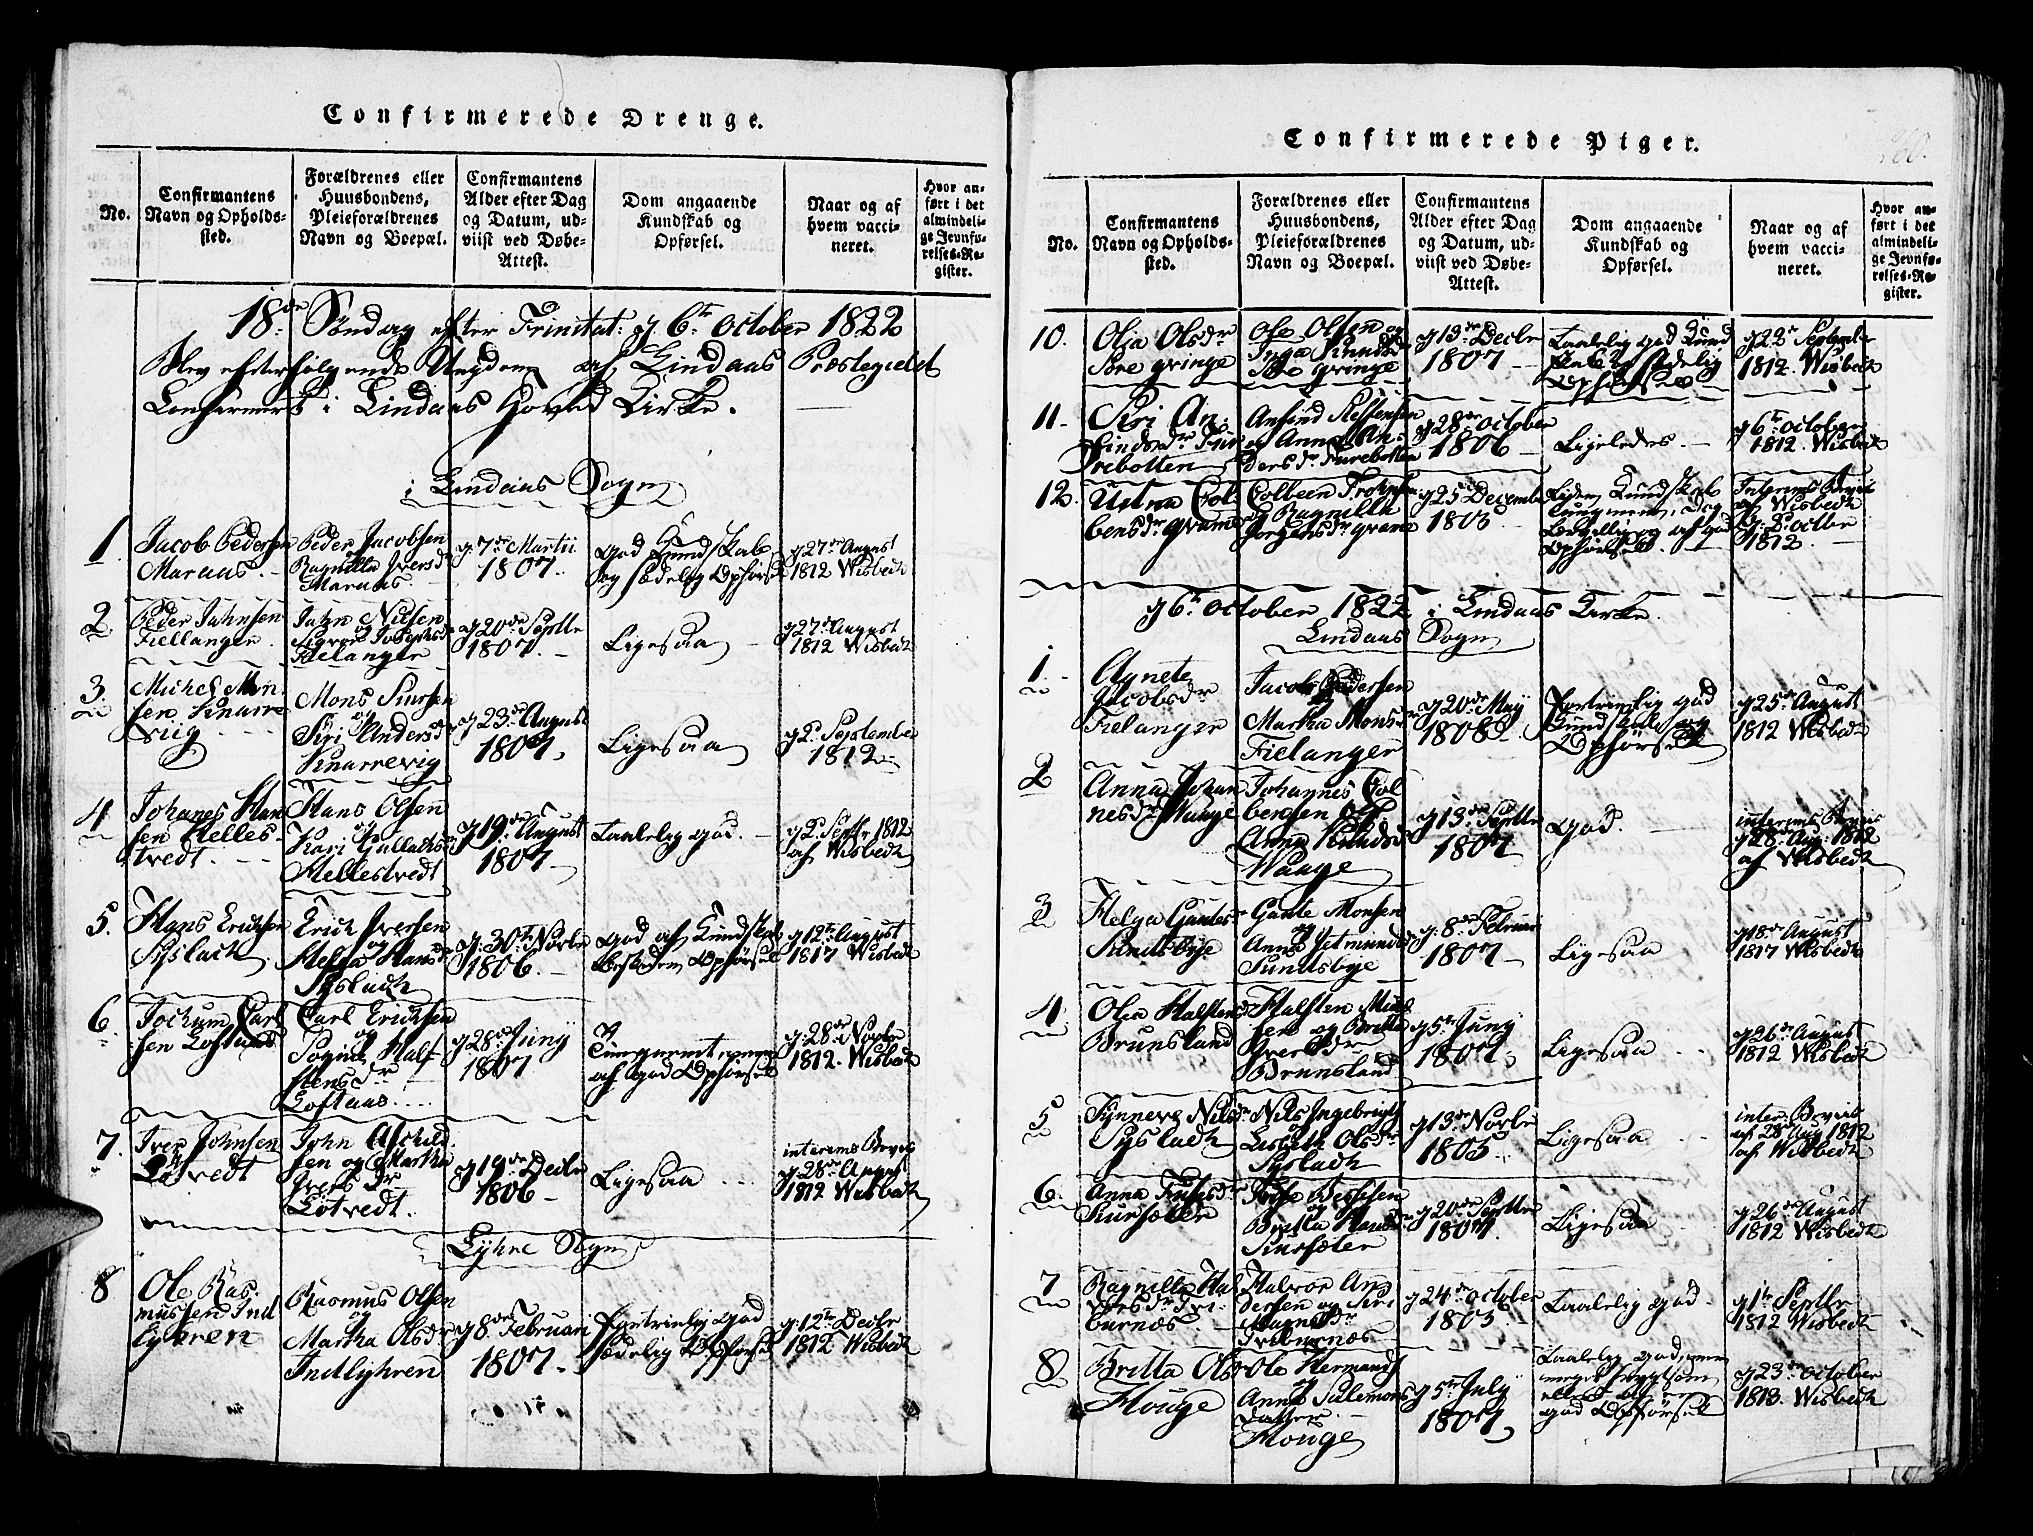 Confirmerede Drenge.
No.
Confirmantens
Navn og Opholds-
sted.
Forældrenes eller
Huusbondens,
Pleieforældrenes
Navn og Boepæl.
Confirmantens
Alder efter Dag
og Datum, ud-
viist ved Døbe-
Attest.
Dom angaaende
Kundskab og
Opførsel.
Naar og af
hvem vacci-
neret.
Hvor an-
ført i det
almindeli-
ge Jevnfø-
relses-Re-
gister.
18de Söndag efter Trinitat: d 6te October 1822
Blev efterfølgende Ungdom af Lindaas Præstegield
Confirmert i Lindaas Hoved Kirke.
i Lindaas Sogn
1
Jacob Pedersen
Maraas.
Peder Jacobsen
Ragnilla Iversd
Maraas
d 7de Martii
1807.
god Kundskab
og sædelig Opførsel
d 27de August
1812 Wisbedh
2
Peder Jahnsen
Fiellanger.
Jahn Nilsen
og
Fielanger
d 20de Septbr
1807.
Ligesaa
d 27de August
1812 Wisbedh
3.
Michel Mon
sen Knarre
viig
Mons Knudsen
og
Siri Andersd
Knarrevig
d 23de August
1807.
Ligesaa
d 2de September
1812
4
Johanes Han
sen Helles
tvedt.
Hans Olsen
og
Kari Gullachsd
Hellestvedt
d 19de August
1807
Taalelig god.
d 2de Septbr 1812
af Wisbedh
5.
Hans Erichsen
Syslach
Erich Iversen
og
Helga Hansd
Syslach
d: 30te Novbr
1806.
god af Kundskab
beskeden Opførsel
d 12te August
1817 Wisbedh
6.
Jochum Carl
sen Loftaas
Carl Erichsen
og
Half
stensdr
Loftaas
d 28de Juny
1807
af god Opførsel
d: 28de Novbr
1812. Wisbedh
7.
Iver Johnsen
Lotvedt
John Aschild
sen og Martha
Iversdr
Lotvedt.
d 19de Decbr
1806
Ligesaa
interims Beviis
d 28de August
1812 Wisbedh
Lyhre Sogn
8
Ole Ras
mussen Ind
lyhren
Rasmus Olsen
og
Martha Olsdr
Indlyhren
d 8de Februari
1807.
Fortrinlig god
sædelig Opførsel
d: 12te Decbr
1812 Wisbedh
Confirmerede Piger.
260.
No.
Confirmantens
Navn og Opholds-
sted.
Forældrenes eller
Huusbondens,
Pleieforældrenes
Navn og Boepæl.
Confirmantens
Alder efter Dag
og Datum, ud-
viist ved Døbe-
Attest.
Dom angaaende
Kundskab og
Opførsel.
Naar og af
hvem vacci-
neret.
Hvor an-
ført i det
almindeli-
ge Jevnfø-
relses-Re-
gister.
10.
Olia Olsdr
gringe
Ole Olsen og
Inga Knudsd
gringe
d 13de Decbr
1807
Taalelig god Kund
skab og sædelig
Opførsel
d 22de Septembr
1812. Wisbedh
11.
Siri An
findsdr Fur
rebotten
Anfind Steffensen
og Anna An
dersdr Furebotten
d 28de October
1806
Ligeledes.
d 6te October
1812. Wisbedh
12.
Colbens
bensdr
og Ragnilla
Jørgensdr
d 25 December
1805
Liden Kundskab
og af god
Opførsel
Interims Beviis
af Wisbedh
Octbr
1812.
d 6te October 1822 i Lindaas Kirke.
Lindaas Sogn
1.
Agnete
Jacobsdr
Fielanger
Jacob Pedersen
og
Martha Monsd
Fielanger
d 20de May
1808
Fortrinlig god
Kundskab og
Opførsel
d 25de August
1812 Wisbedh
2
Anna Johan
nesdr Waage
Johannes Col
bensen og
Anna Knudsd
Waage
d 13de Septbr
1807
god.
interims Beviis
d 28de Aug: 1812
af Wisbedh
3
Helga Gautes
Sundsbye
Gaute Monsen
og
Anna Jetmundsd
Sundsbye
d: 8de Februar
1807
Ligesaa
d 18de August
1817 Wisbedh
4
Olia Halstens
Brunsland
Halsten Mich
sen og Britta
Iversdr
Brunsland
d 5te Juny
1807.
Ligesaa
d 26de August
1812 Wisbedh
5
Synneve Nilsdr
Syslach
Nils Ingebrigts
og
Lisbeth Olsdr
Syslach
d 13de Novbr
1805
Ligesaa
interi Beviis
af 28 Aug 1812
af. Wisbedh
6.
Anna
og
Britta Hansd
d 20de Septbr
1807.
Ligesaa
d 26de August
1812 Wisbedh
7
Ragnilla Hal
vorsdr Tvi
burnæs.
Halvor An
dersen og Siri
Magnesdr
Tviburnæs
d 24de October
1805.
Taalelig god
d 1te Septbr
1812 Wisbedh
8
Britta Ols
Houge
Ole Hermands
og
Anna Salemons
datter
Houge
d 5te July
1807
Taalelig god, men
meget
ellers af en
god Opførsel
d 23de October
1813. Wisbedh